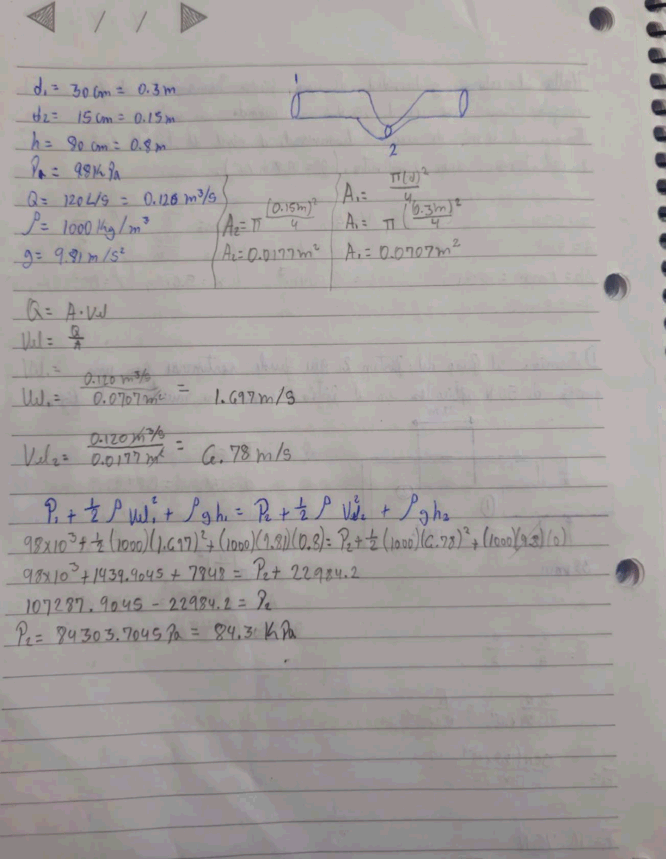 / /
1
d₁ = 30cm = 0.3m
d₂ = 15cm = 0.15m
2
h = 80cm = 0.8m
P₁ = 98KPa
Q = 120L/s = 0.120 m³/s
ρ = 1000 Kg/m³
g = 9.81 m/s²
A₂ = π (0.15m)²/4
A₂ = 0.0177m²
A₁ = π(d)²/4
A₁ = π (0.3m)²/4
A₁ = 0.0707m²
Q = A · Vel
Vel = Q/A
Vel₁ = 0.120 m³/s / 0.0707m² = 1.697m/s
Vel₂ = 0.120 m³/s / 0.0177m² = 6.78 m/s
P₁ + ½ ρ Vel₁² + ρgh₁ = P₂ + ½ ρ Vel₂² + ρgh₂
98x10³ + ½ (1000)(1.697)² + (1000)(9.81)(0.8) = P₂ + ½ (1000)(6.78)² + (1000)(9.8)(0)
98x10³ + 1439.9045 + 7848 = P₂ + 22984.2
107287.9045 - 22984.2 = P₂
P₂ = 84303.7045Pa = 84.3 KPa